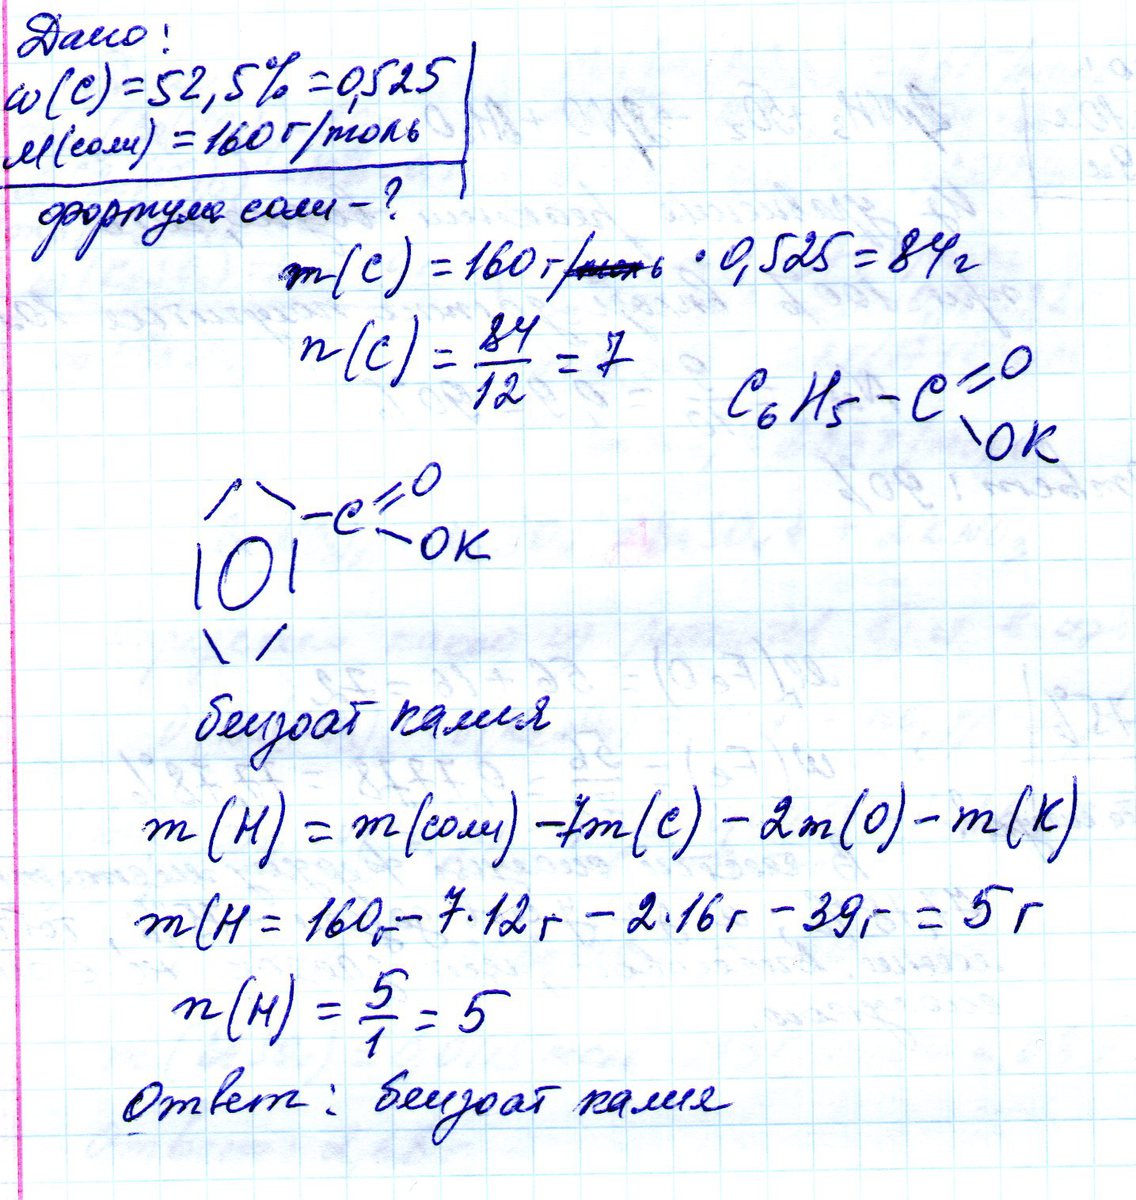 Дано:
ω(C) = 52,5% = 0,525
M(соли) = 160 г/моль
формула соли - ?
m(C) = 160 г/моль · 0,525 = 84 г
n(C) = 84/12 = 7
C₆H₅ - C = O
\ OK
- C = O
\ OK
бензоат калия
m(H) = m(соли) - 7m(C) - 2m(O) - m(K)
m(H = 160г - 7·12г - 2·16г - 39г = 5г
n(H) = 5/1 = 5
Ответ: бензоат калия